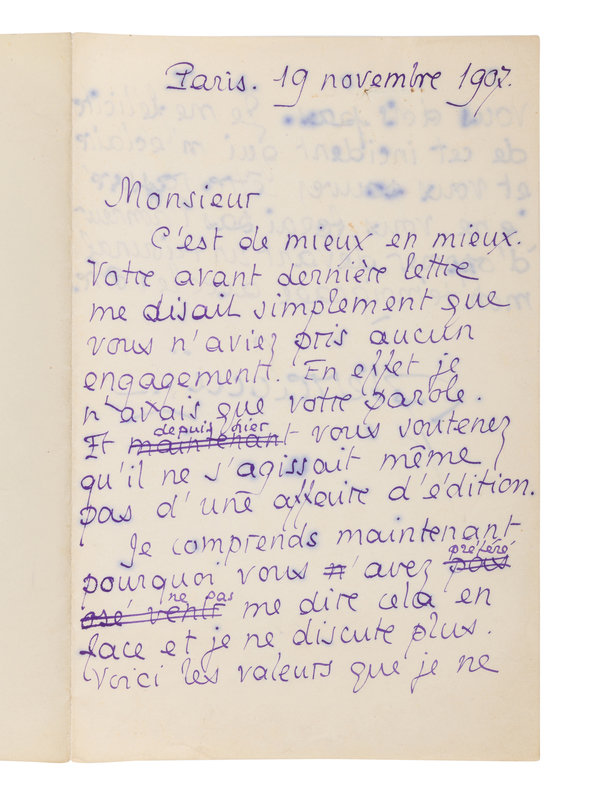 Paris. 19 novembre 1907.
Monsieur
C'est de mieux en mieux.
Votre avant dernière lettre
me disait simplement que
vous n'aviez pris aucun
engagement. En effet je
n'avais que votre parole.
depuis hier
Et maintenant vous soutenez
qu'il ne s'agissait même
pas d'une affaire d'édition.
Je comprends maintenant
préféré
pourquoi vous n'avez pas
ne pas
osé venir me dire cela en
face et je ne discute plus.
Voici les valeurs que je ne